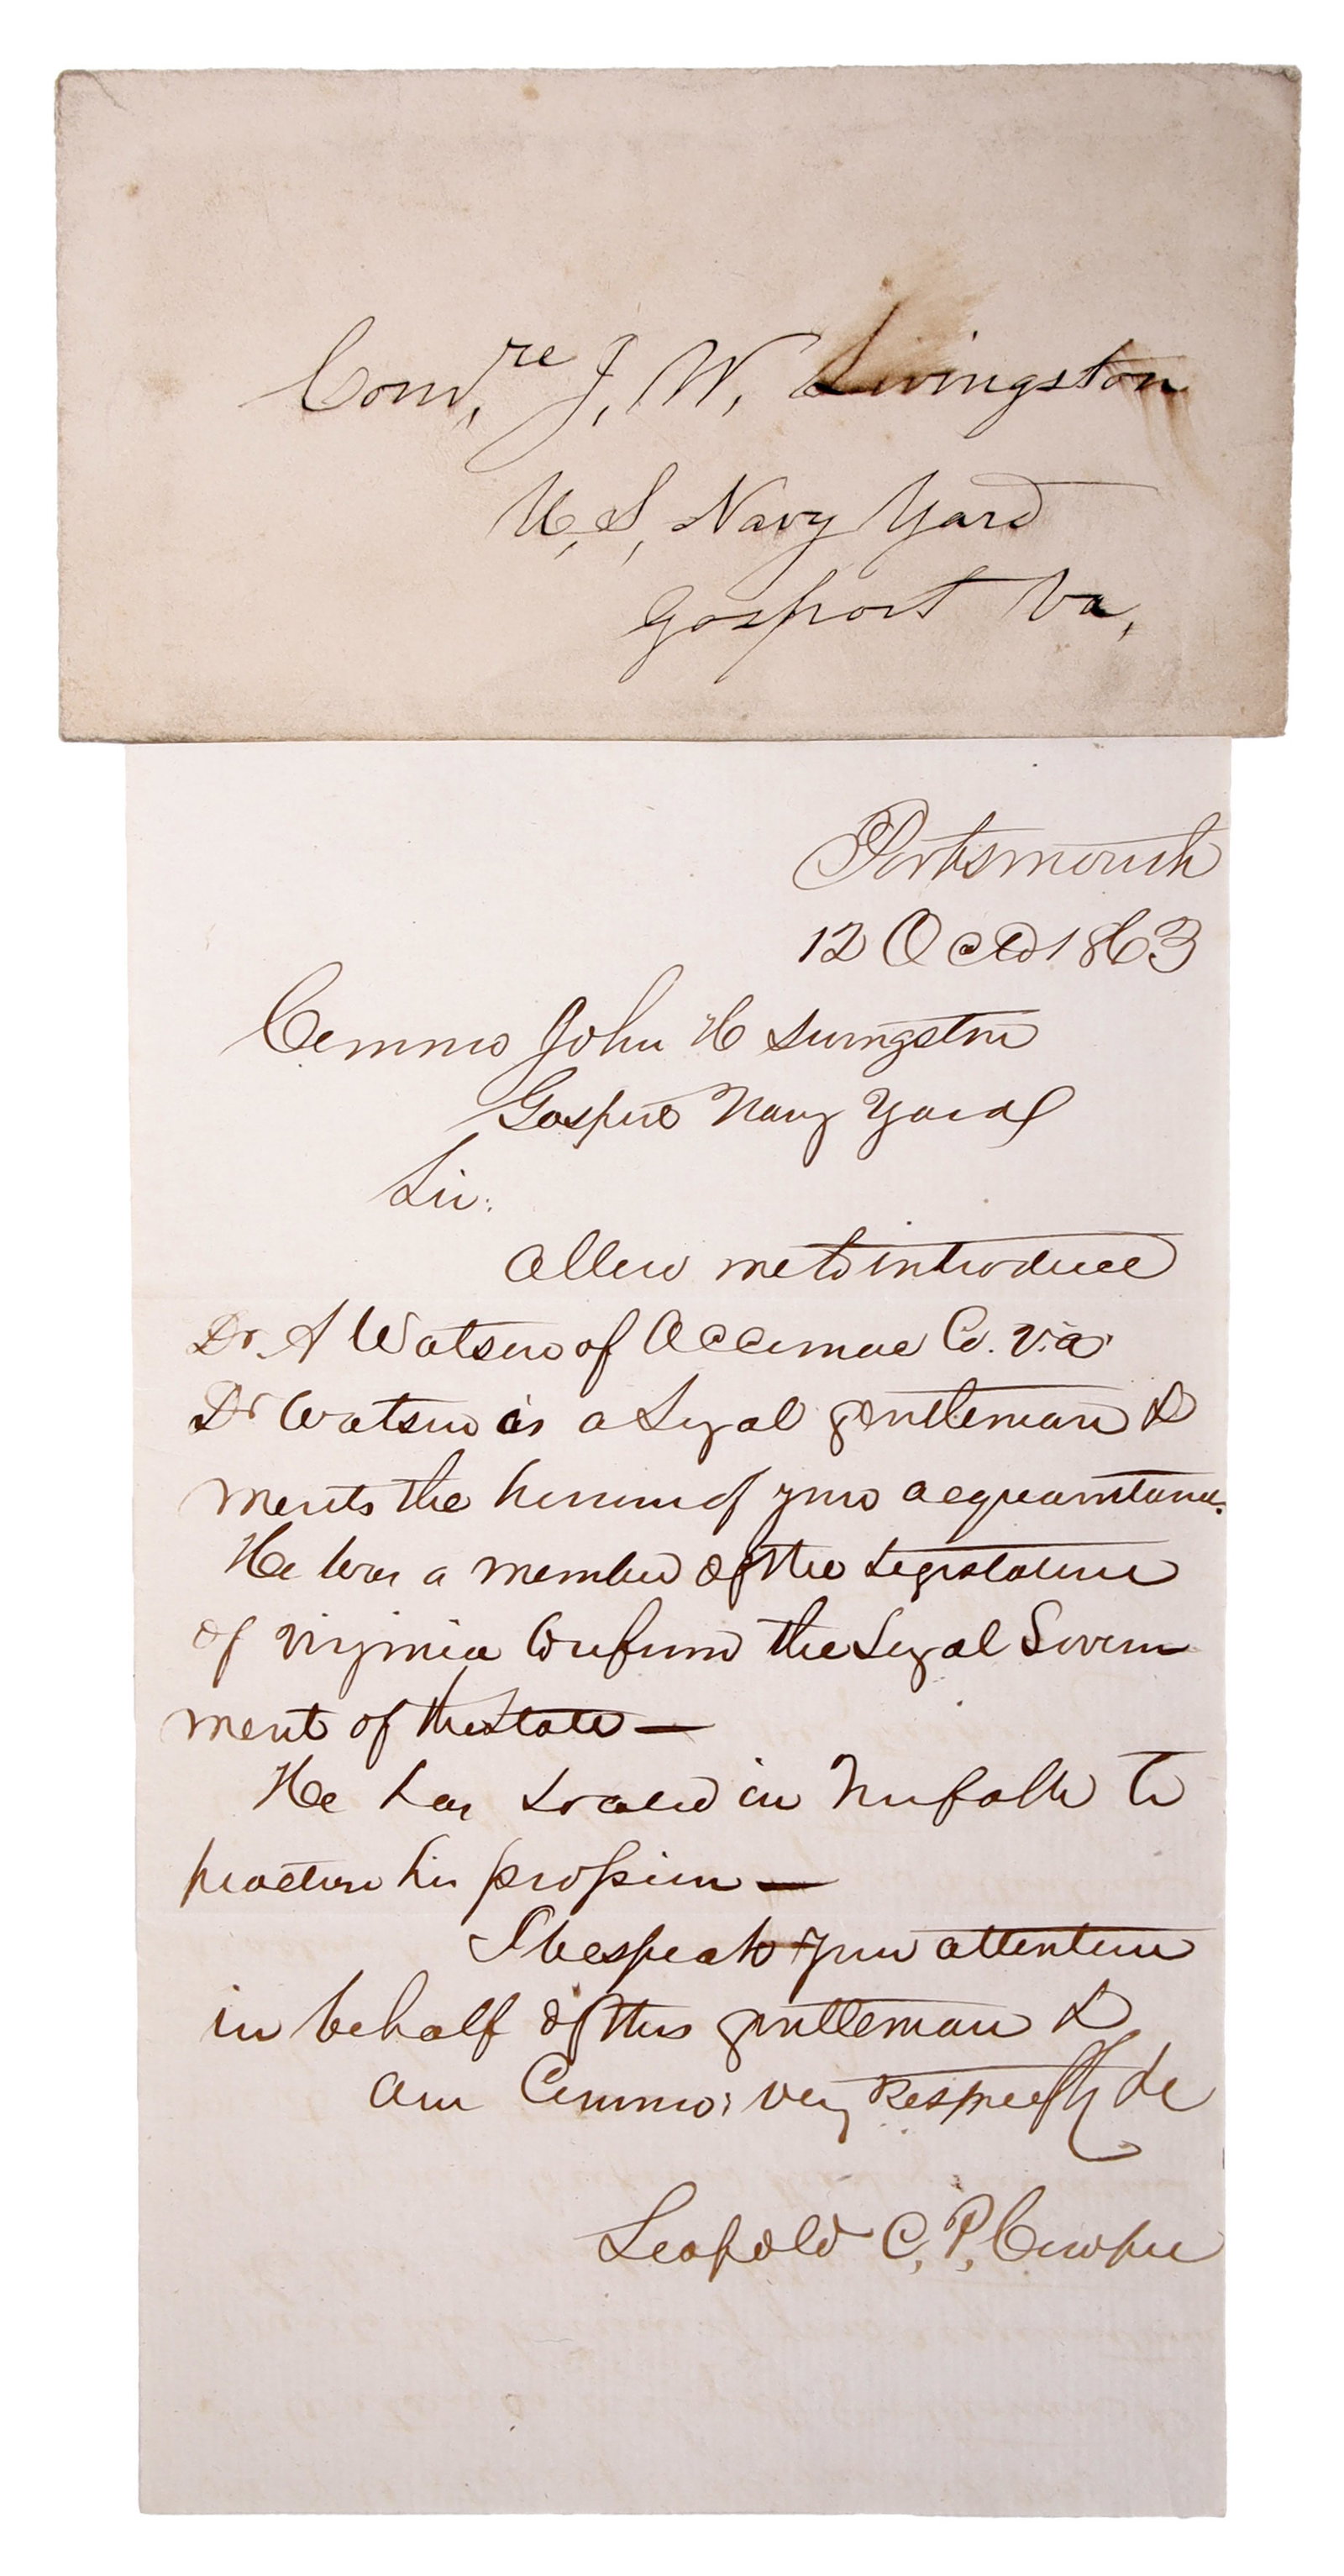 Comre J. W. Livingston
U. S. Navy Yard
Gosport Va.
Portsmouth
12 Oct 1863
Commo John H Livingston
Gosport Navy Yard
Sir:
Allow me to introduce
Dr. A Watson of Accomac Co. Va.
Dr Watson is a Loyal gentleman &
merits the honour of your acquaintance.
He was a member of the Legislature
of Virginia under the Loyal Govern
ment of the State —
He has located in Norfolk to
practise his profession —
I bespeak your attention
in behalf of this gentleman &
am Commo: very Respectfly &c
Leopold C. P. Cowper